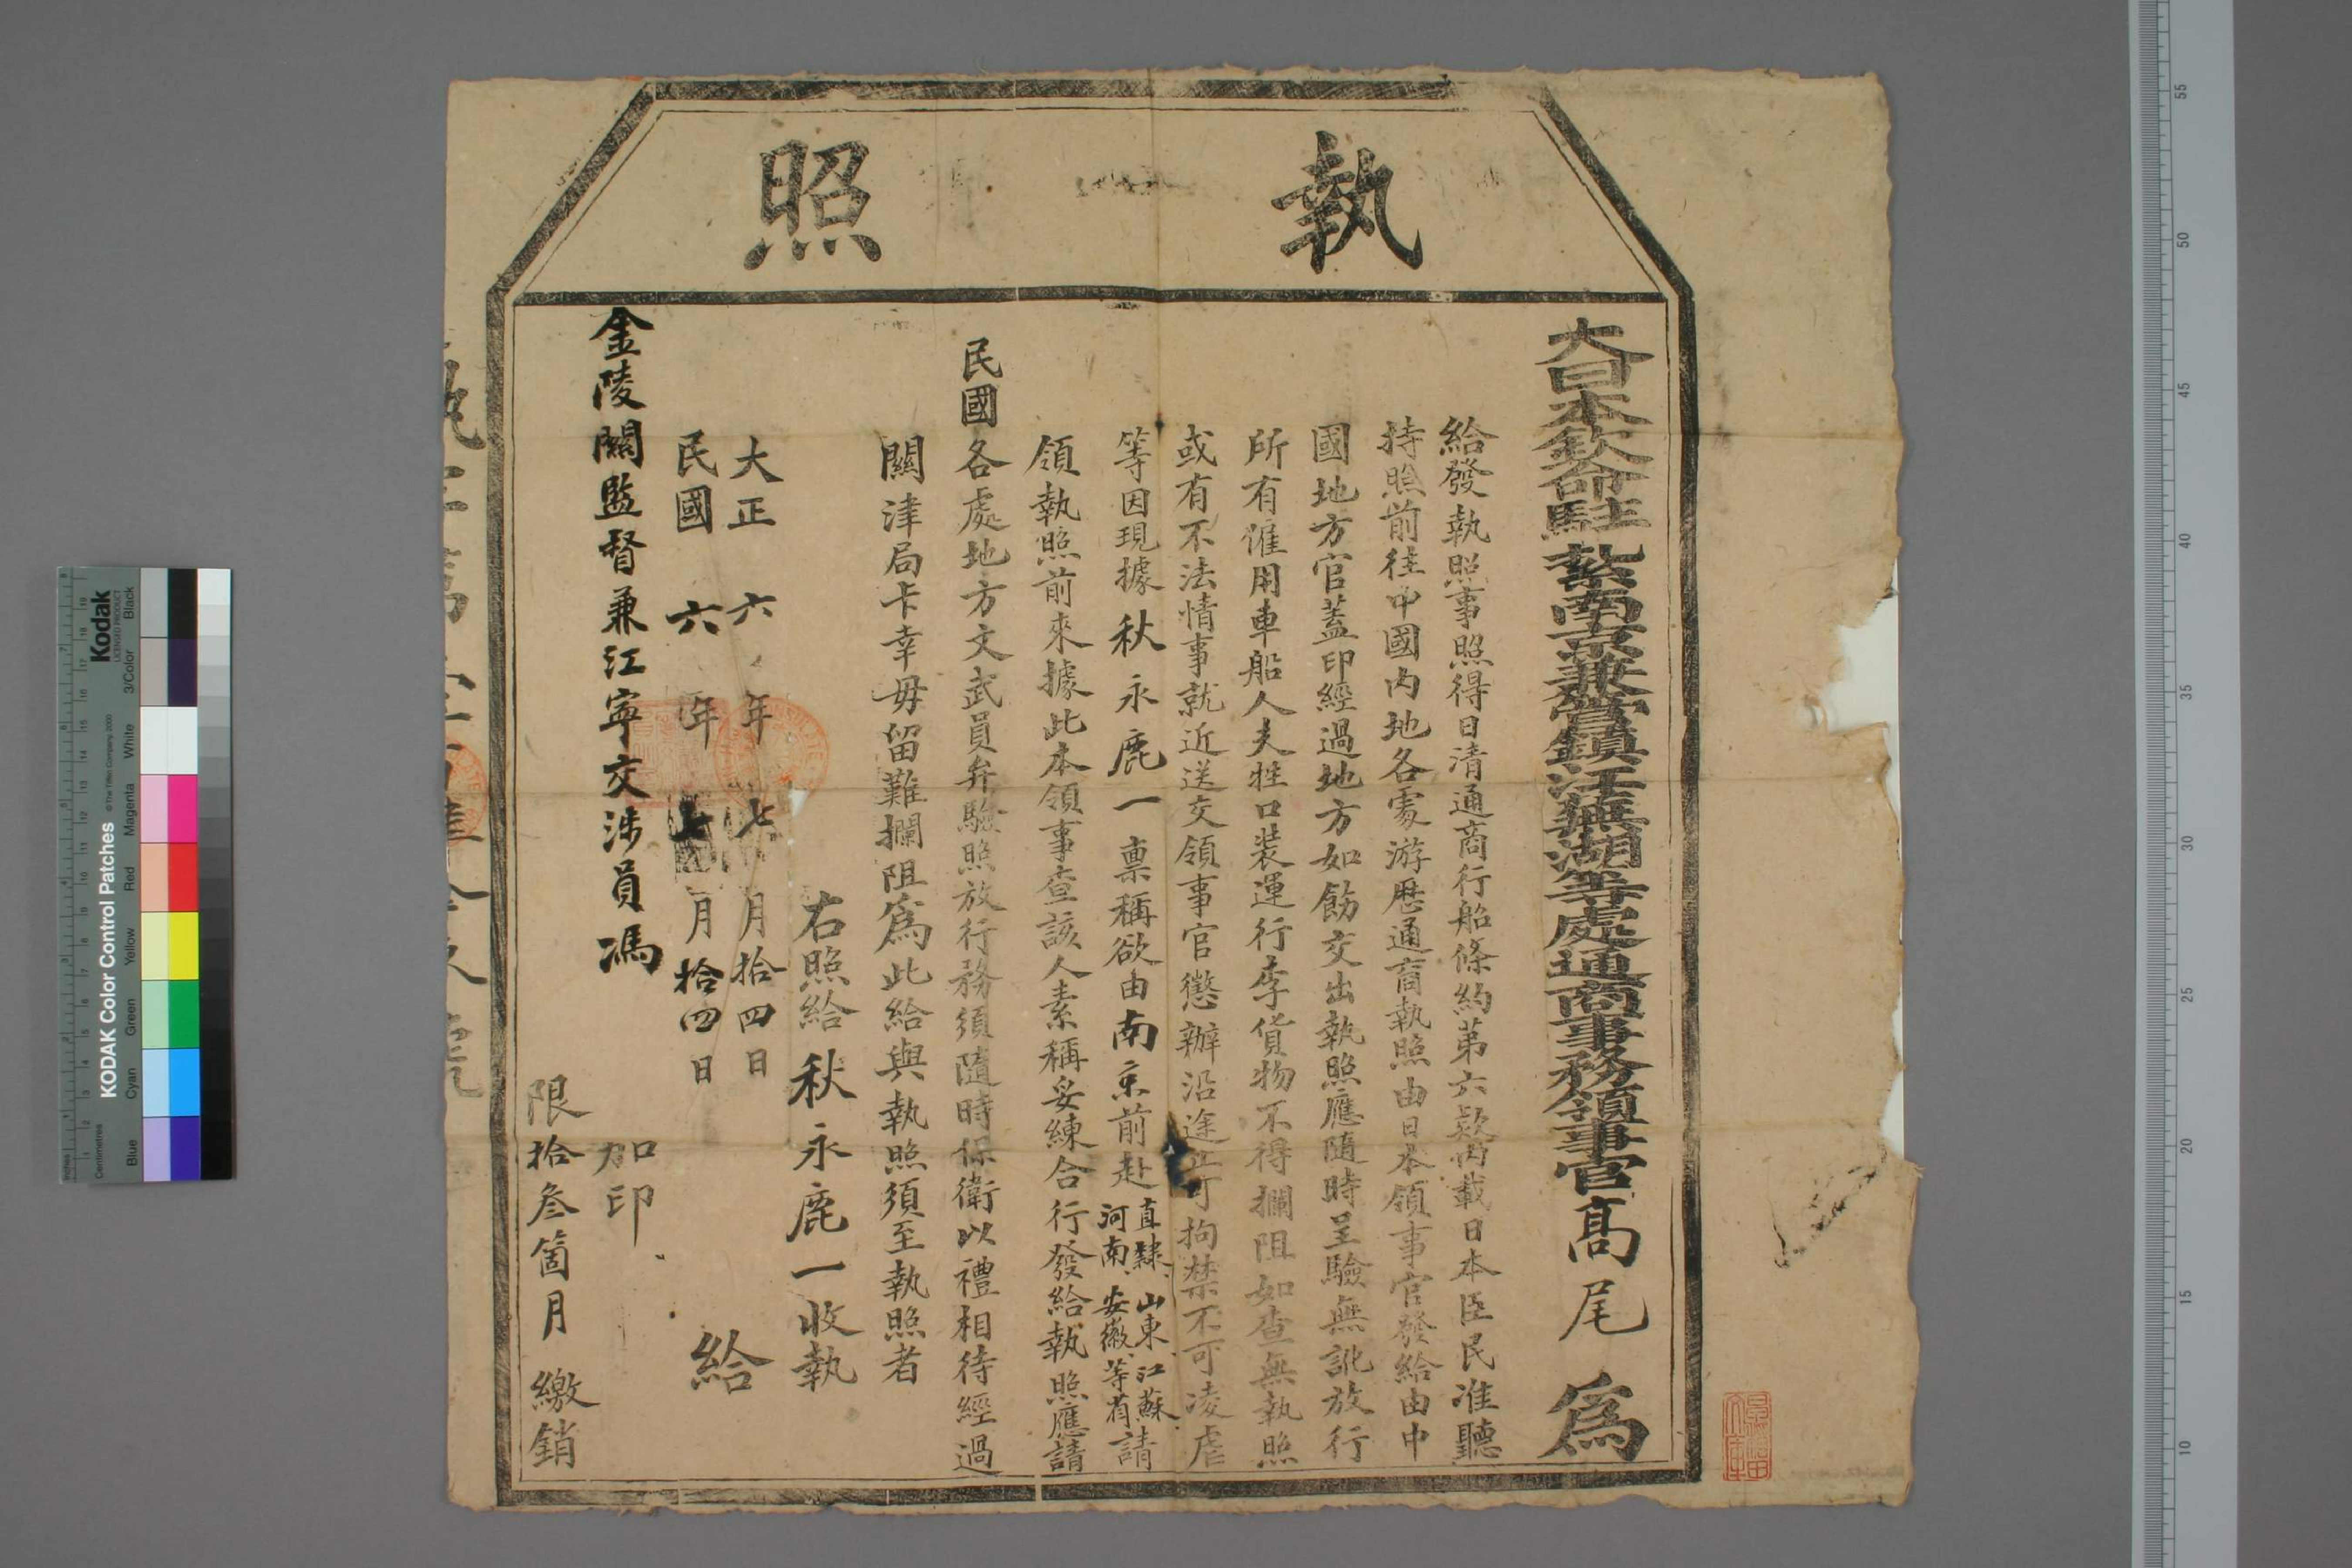 執照
大日本欽命駐紮南京兼管鎮江蕪湖等處通商事務領事官高尾為
給發執照事照得日清通商行船條約第六款內載日本臣民准聽
持照前往中國內地各處游歷通商執照由日本領事官發給由中
國地方官蓋印經過地方如飭交出執照應隨時呈驗無訛放行
所有僱用車船人夫牲口裝運行李貨物不得攔阻如查無執照
或有不法情事就近送交領事官懲辦沿途止可拘禁不可凌虐
等因現據秋永鹿一稟稱欲由南京前赴直隸、山東、江蘇、河南、安徽、等省請
領執照前來據此本領事查該人素稱妥練合行發給執照應請
民國各處地方文武員弁驗照放行務須隨時保衛以禮相待經過
關津局卡幸毋留難攔阻為此給與執照須至執照者
右照給秋永鹿一收執
大正六年七月拾四日
民國六年七月拾四日
給
金陵關監督兼江寧交涉員馮
加印
限拾叁箇月繳銷
KODAK Color Control Patches
Kodak
LICENSED PRODUCT
© The Tiffen Company, 2000
Blue Cyan Green Yellow Red Magenta White 3/Color Black
Inches
Centimetres
55 50 45 40 35 30 25 20 15 10